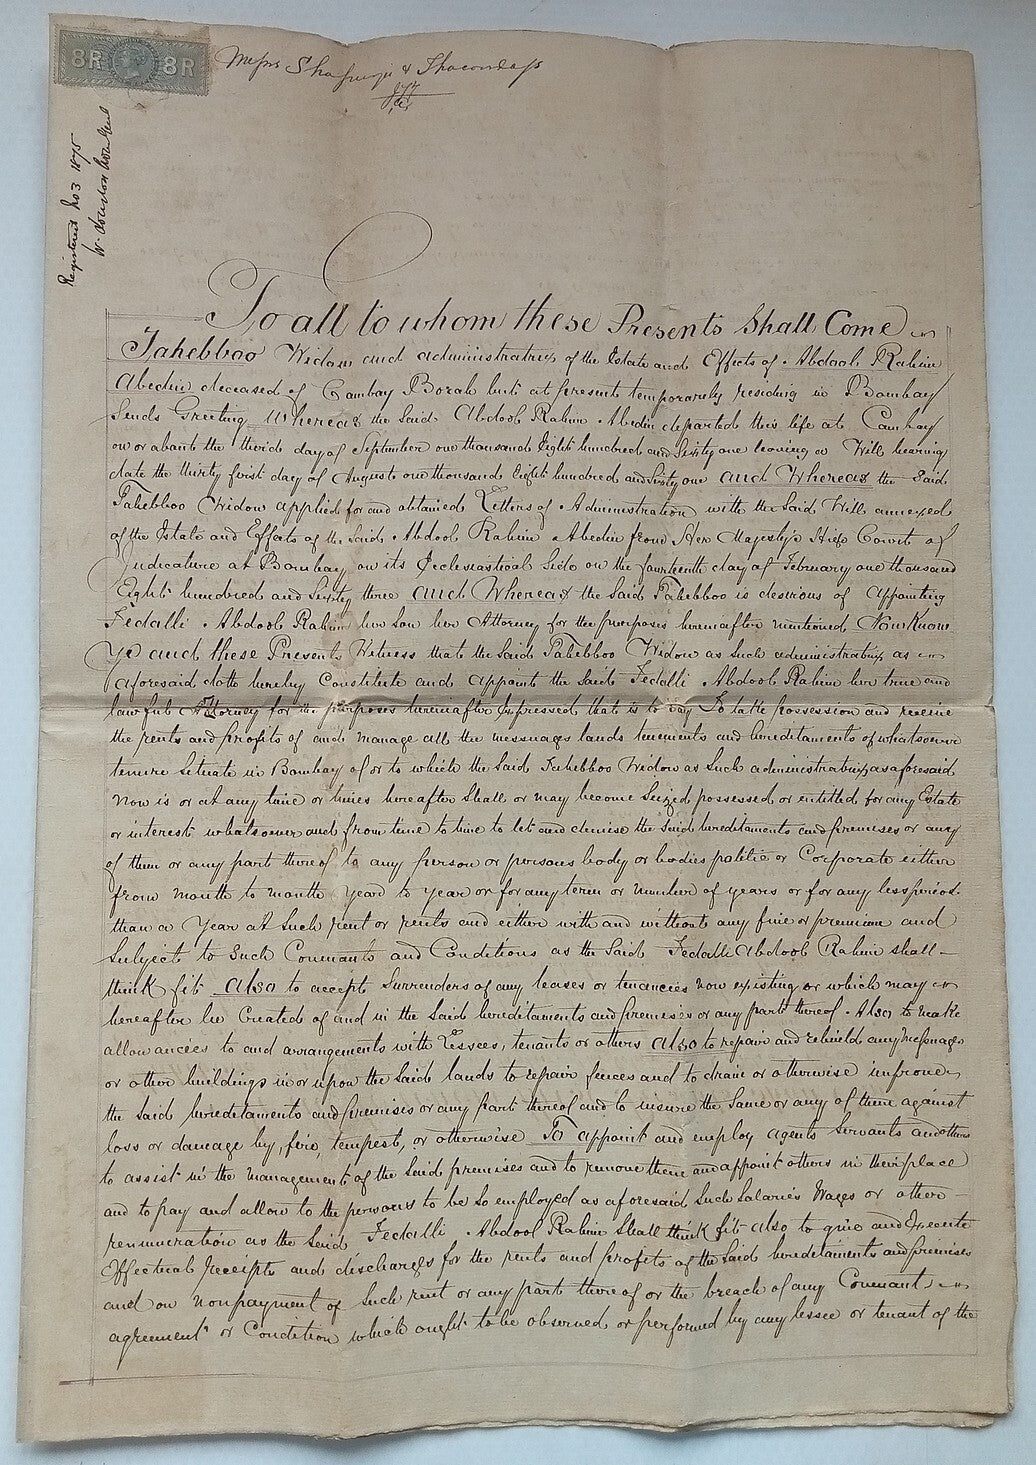 8R 8R
Messrs Shapurji & Thacoordass
Registered No 3 1875
W.
To all to whom these Presents Shall Come
Tahebboo Widow and administratrix of the Estate and Effects of Abdool Rahim
Abedin deceased of Cambay Borah but at present temporarily residing in Bombay
Sends Greeting Whereas the said Abdool Rahim Abedin departed this life at Cambay
on or about the third day of September one thousand Eight hundred and Sixty one leaving a Will bearing
date the thirty first day of August one thousand Eight hundred and Sixty one and Whereas the Said
Tahebboo Widow applied for and obtained Letters of Administration with the Said Will annexed
of the Estate and Effects of the Said Abdool Rahim Abedin from Her Majesty's High Court of
Judicature at Bombay on its Ecclesiastical Side on the fourteenth day of February one thousand
Eight hundred and Sixty three and Whereas the Said Tahebboo is desirous of appointing
Fedalli Abdool Rahim her Son her Attorney for the purposes hereinafter mentioned Now Know
Ye and these Presents Witness that the Said Tahebboo Widow as Such administratrix as
aforesaid doth hereby Constitute and appoint the Said Fedalli Abdool Rahim her true and
lawful Attorney for the purposes hereinafter Expressed that is to say To take possession and receive
the rents and profits of and manage all the messuages lands tenements and hereditaments of whatsoever
tenure Situate in Bombay of or to which the Said Tahebboo Widow as Such administratrix as aforesaid
now is or at any time or times hereafter Shall or may become Seized possessed or entitled for any Estate
or interest whatsoever and from time to time to let and demise the Said hereditaments and premises or any
of them or any part thereof to any person or persons body or bodies politic or Corporate either
from month to month year to year or for any term or number of years or for any less period
than a Year at Such rent or rents and either with and without any fine or premium and
Subject to Such Covenants and Conditions as the Said Fedalli Abdool Rahim shall
think fit Also to accept Surrenders of any leases or tenancies now existing or which may
hereafter be Created of and in the Said hereditaments and premises or any part thereof Also to make
allowances to and arrangements with Lessees, tenants or others also to repair and rebuild any Messuages
or other buildings in or upon the Said lands to repair fences and to drain or otherwise improve
the Said hereditaments and premises or any part thereof and to insure the Same or any of them against
loss or damage by, fire, tempest, or otherwise To appoint and employ agents Servants and others
to assist in the management of the Said premises and to remove them and appoint others in their place
and to pay and allow to the persons to be so employed as aforesaid Such Salaries Wages or other
renumeration as the Said Fedalli Abdool Rahim Shall think fit also to give and Execute
Effectual receipts and discharges for the rents and profits of the Said hereditaments and premises
and on nonpayment of Such rent or any part thereof or the breach of any Covenant
agreement or Condition which ought to be observed or performed by any lessee or tenant of the